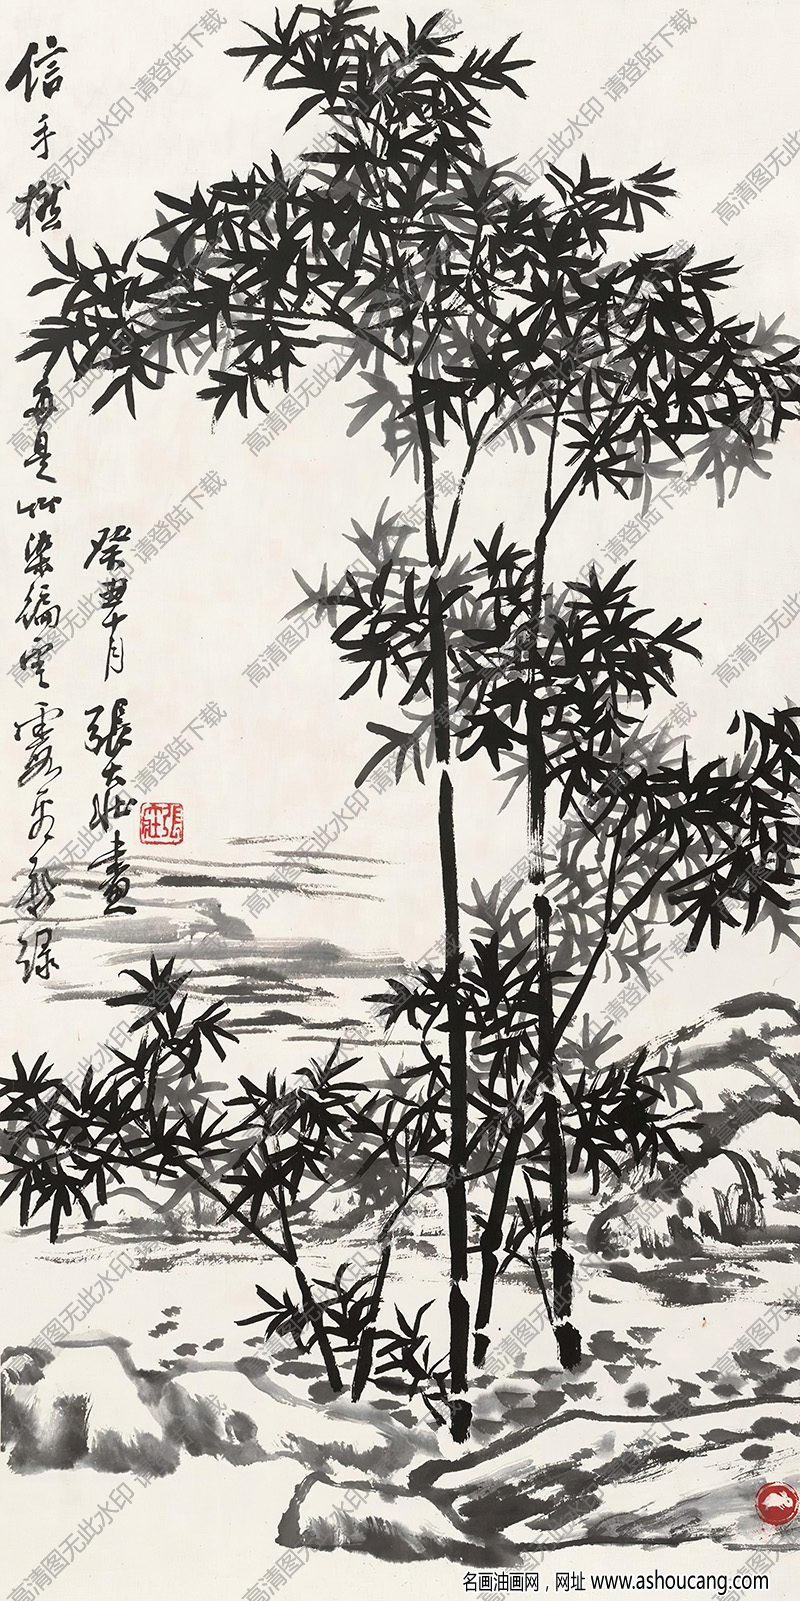 信手拈
亦是竹染编空露香新绿
癸丑十月
張大壮畫
張
壯
高清图无此水印 请登陆下载
名画油画网，网址 www.ashoucang.com